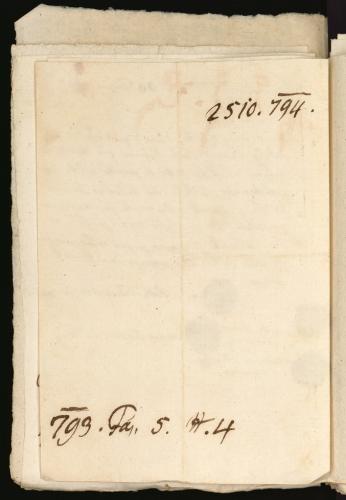 2510. 794.
793. Fa. 5. N. 4